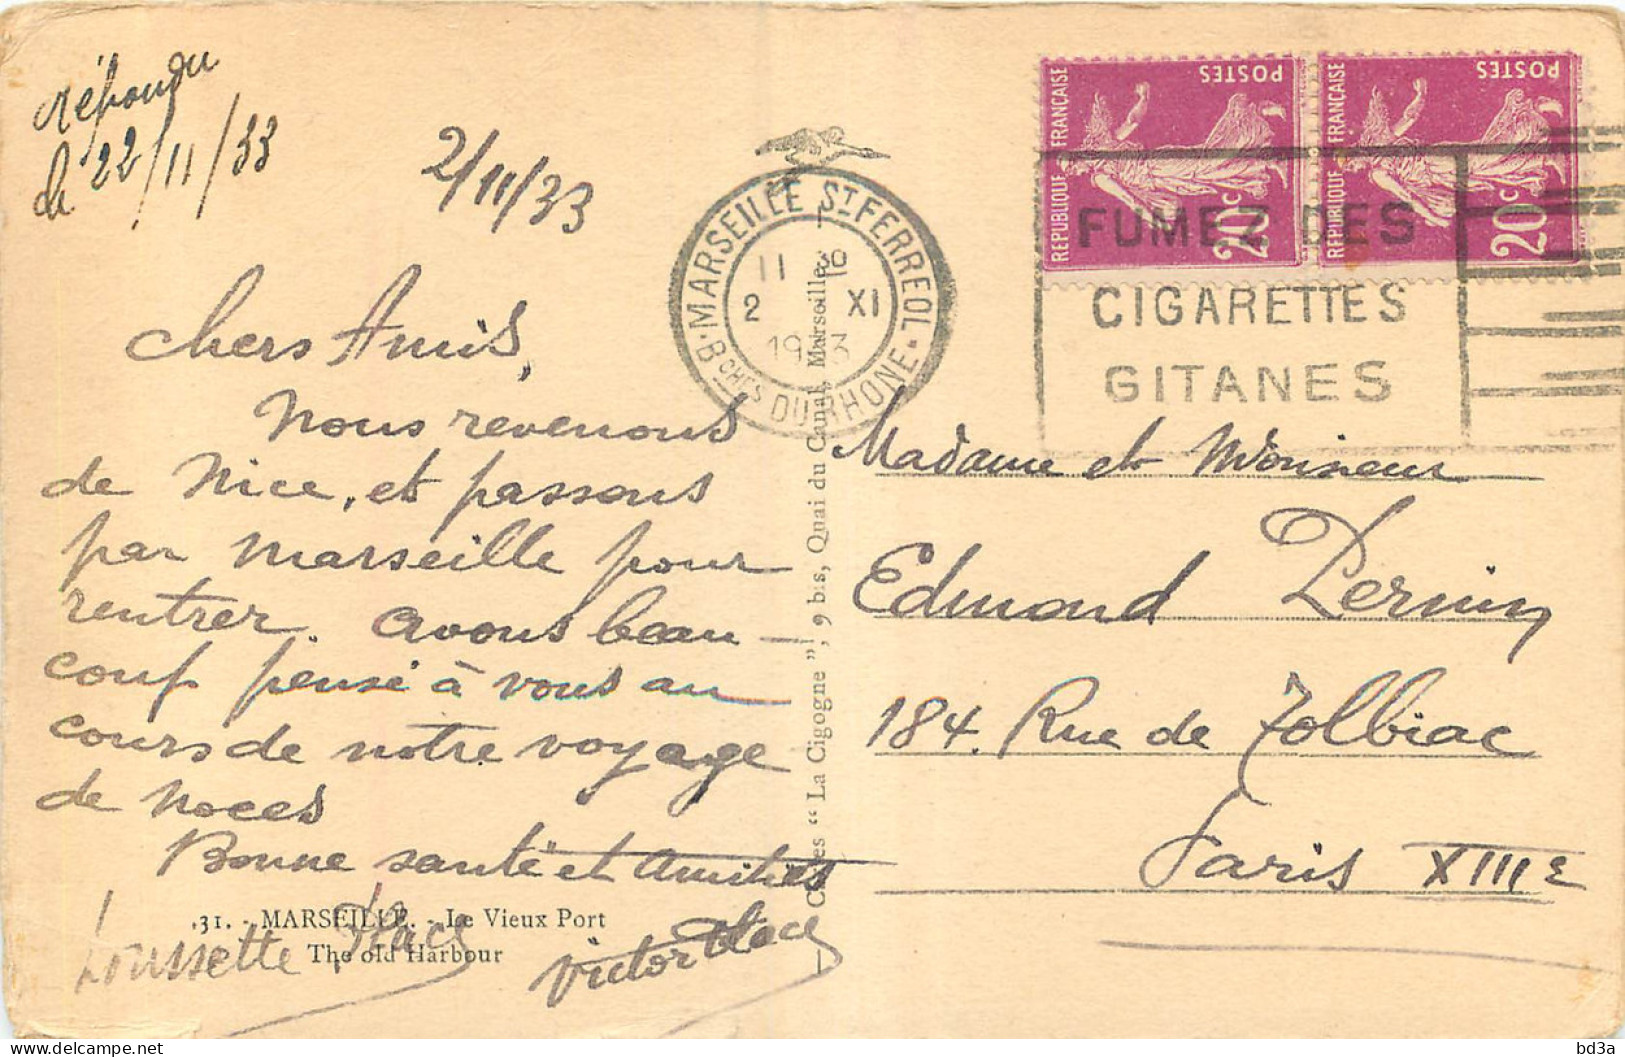 répondu
le 22/11/33
2/11/33
Chers Amis,
Nous revenons
de Nice, et passons
par Marseille pour
rentrer. Avons beau-
coup pensé à vous au
cours de notre voyage
de Noces
Bonne santé et Amitiés
31. - MARSEILLE. - Le Vieux Port
The old Harbour
Victor
MARSEILLE ST FERREOL
BCHES DU RHONE
11 30
2 XI
REPUBLIQUE FRANÇAISE
POSTES
20c
REPUBLIQUE FRANÇAISE
POSTES
20c
FUMEZ DES
CIGARETTES
GITANES
"La Cigogne", 9 bis, Quai du Canal, Marseille
Madame et Monsieur
Edmond
184. Rue de Tolbiac
Paris XIIIe
bd3a